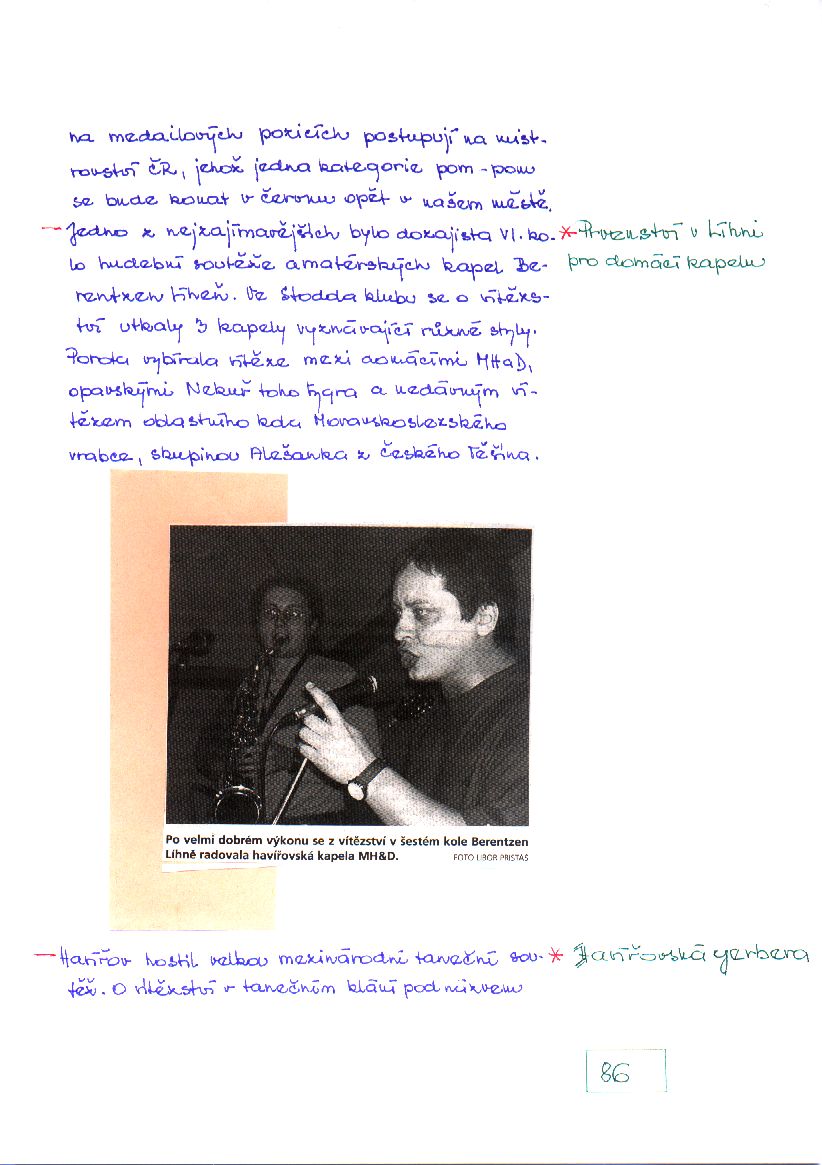 na medailových pozicích postupují na mist-
rovství ČR, jehož jedna kategorie pom-pom
se bude konat v červnu opět v našem městě.
— Jedno z nejzajímavějších bylo dozajista VI. ko-
lo hudební soutěže amatérských kapel Be-
rentzen Líheň. Ve Stodda klubu se o vítězs-
tví utkaly 3 kapely vyznávající různé styly.
Porota vybírala vítěze mezi domácími MHaD,
opavskými Nekuř toho Fygra a nedávným ví-
tězem oblastního kola Moravskoslezského
vrabce, skupinou Alešanka z českého Těšína.
* Prvenství v Líhni
pro domácí kapelu
Po velmi dobrém výkonu se z vítězství v šestém kole Berentzen
Líhně radovala havířovská kapela MH&D. FOTO LIBOR PŘISTÁŠ
— Havířov hostil velkou mezinárodní taneční sou-
těž. O vítězství v tanečním klání pod názvem
* Havířovská gerbera
86